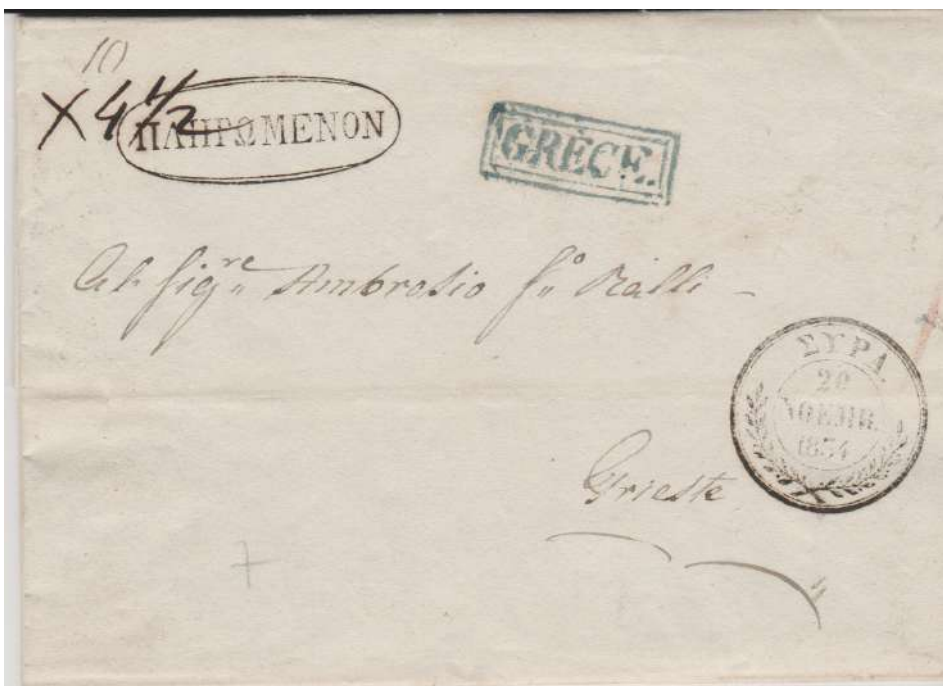 10
X 4 1/2
ΠΛΗΡΩΜΕΝΟΝ
GRÈCE.
Al. Sigre Ambrosio fo Ralli
ΣΥΡΑ.
20
ΝΟΕΜΒ.
1834
Trieste